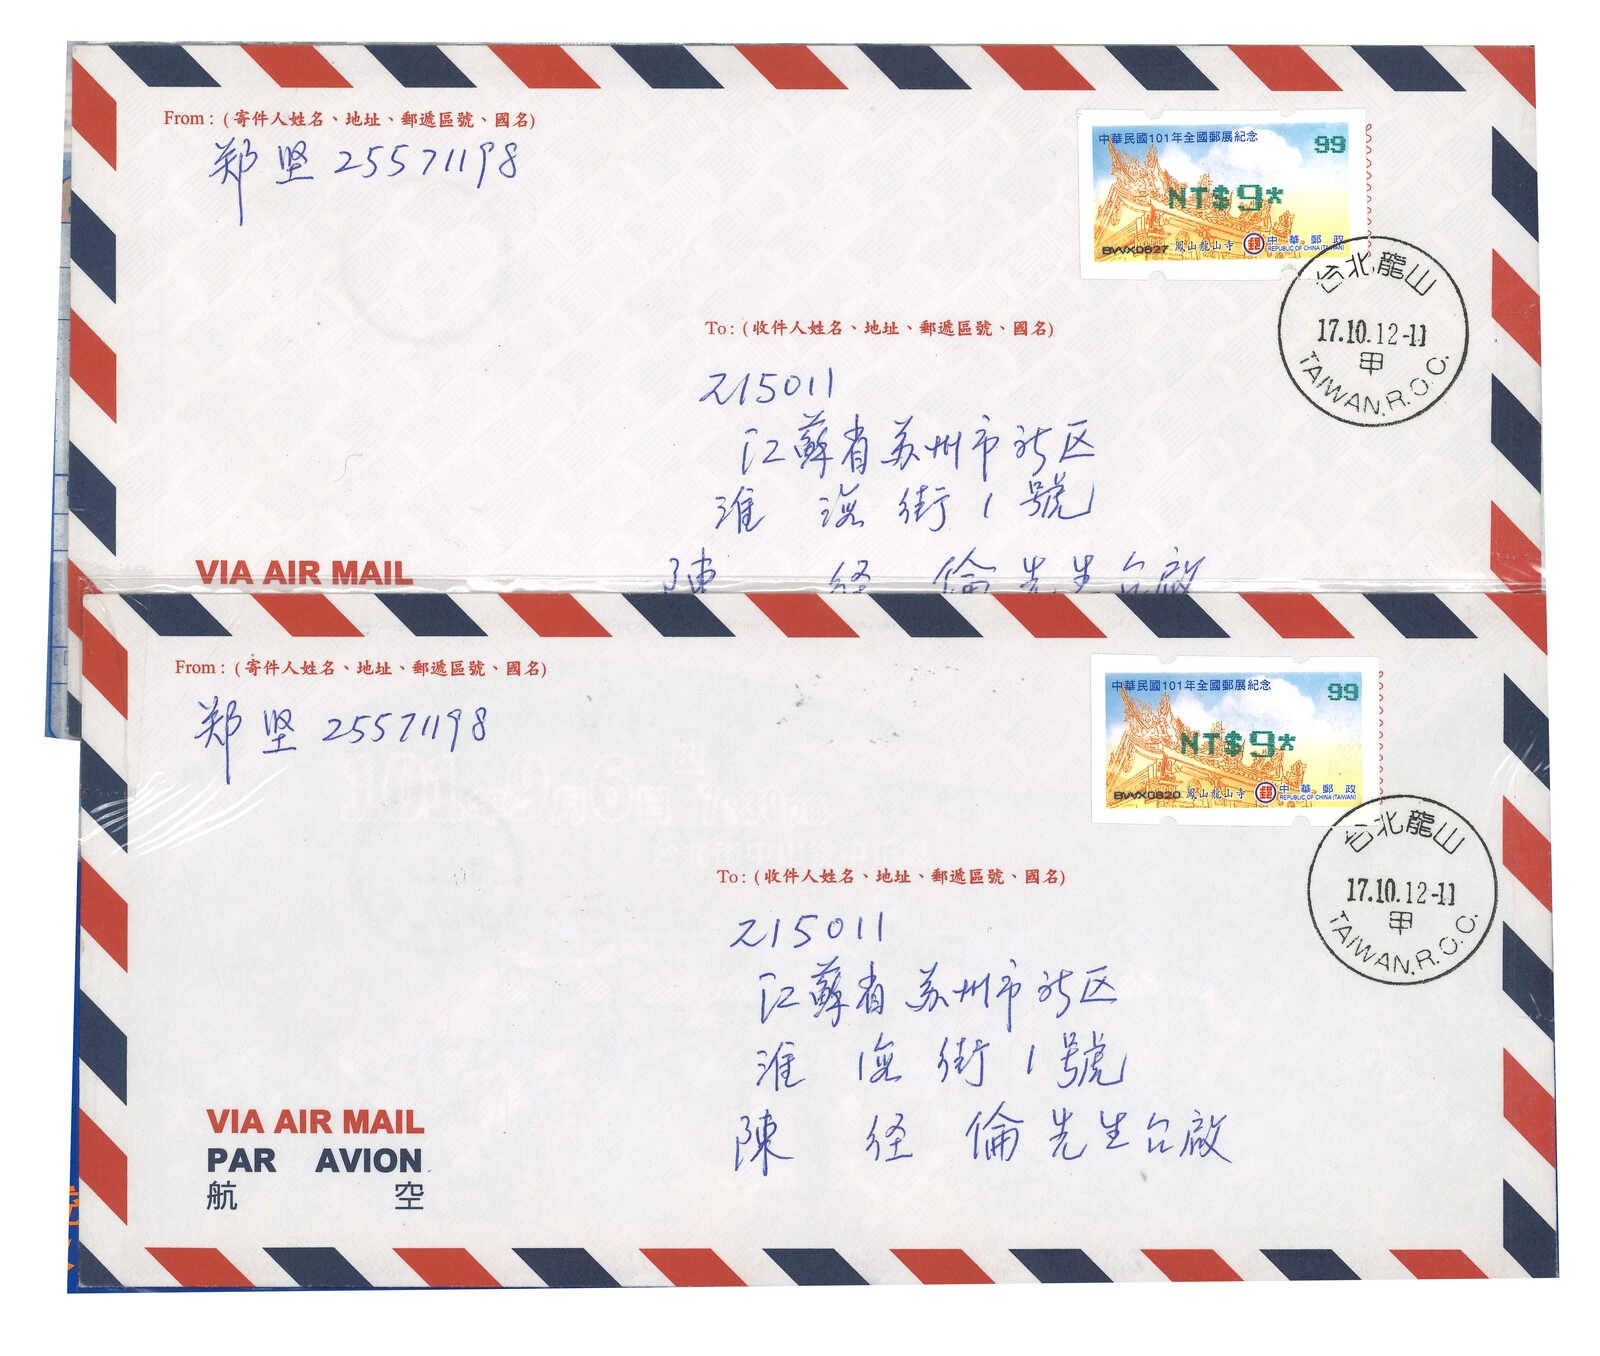 From：(寄件人姓名、地址、郵遞區號、國名)
郑坚 25571198
中華民國101年全國郵展紀念
99
NT$9*
BWX0827 鳳山龍山寺 郵 中華郵政
REPUBLIC OF CHINA (TAIWAN)
台北龍山
17.10.12-11
甲
TAIWAN.R.O.C.
To：(收件人姓名、地址、郵遞區號、國名)
215011
江蘇省苏州市新区
淮海街1號
陳经倫先生台啟
VIA AIR MAIL
From：(寄件人姓名、地址、郵遞區號、國名)
郑坚 25571198
中華民國101年全國郵展紀念
99
NT$9*
BWX0820 鳳山龍山寺 郵 中華郵政
REPUBLIC OF CHINA (TAIWAN)
台北龍山
17.10.12-11
甲
TAIWAN.R.O.C.
To：(收件人姓名、地址、郵遞區號、國名)
215011
江蘇省苏州市新区
淮海街1號
陳经倫先生台啟
VIA AIR MAIL
PAR AVION
航空